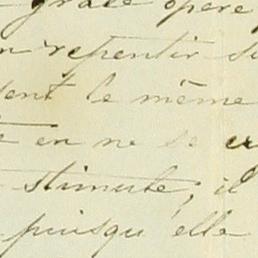 grâce opère
repentir su
ent le même
en ne se cr
stimule, il
puisqu'elle